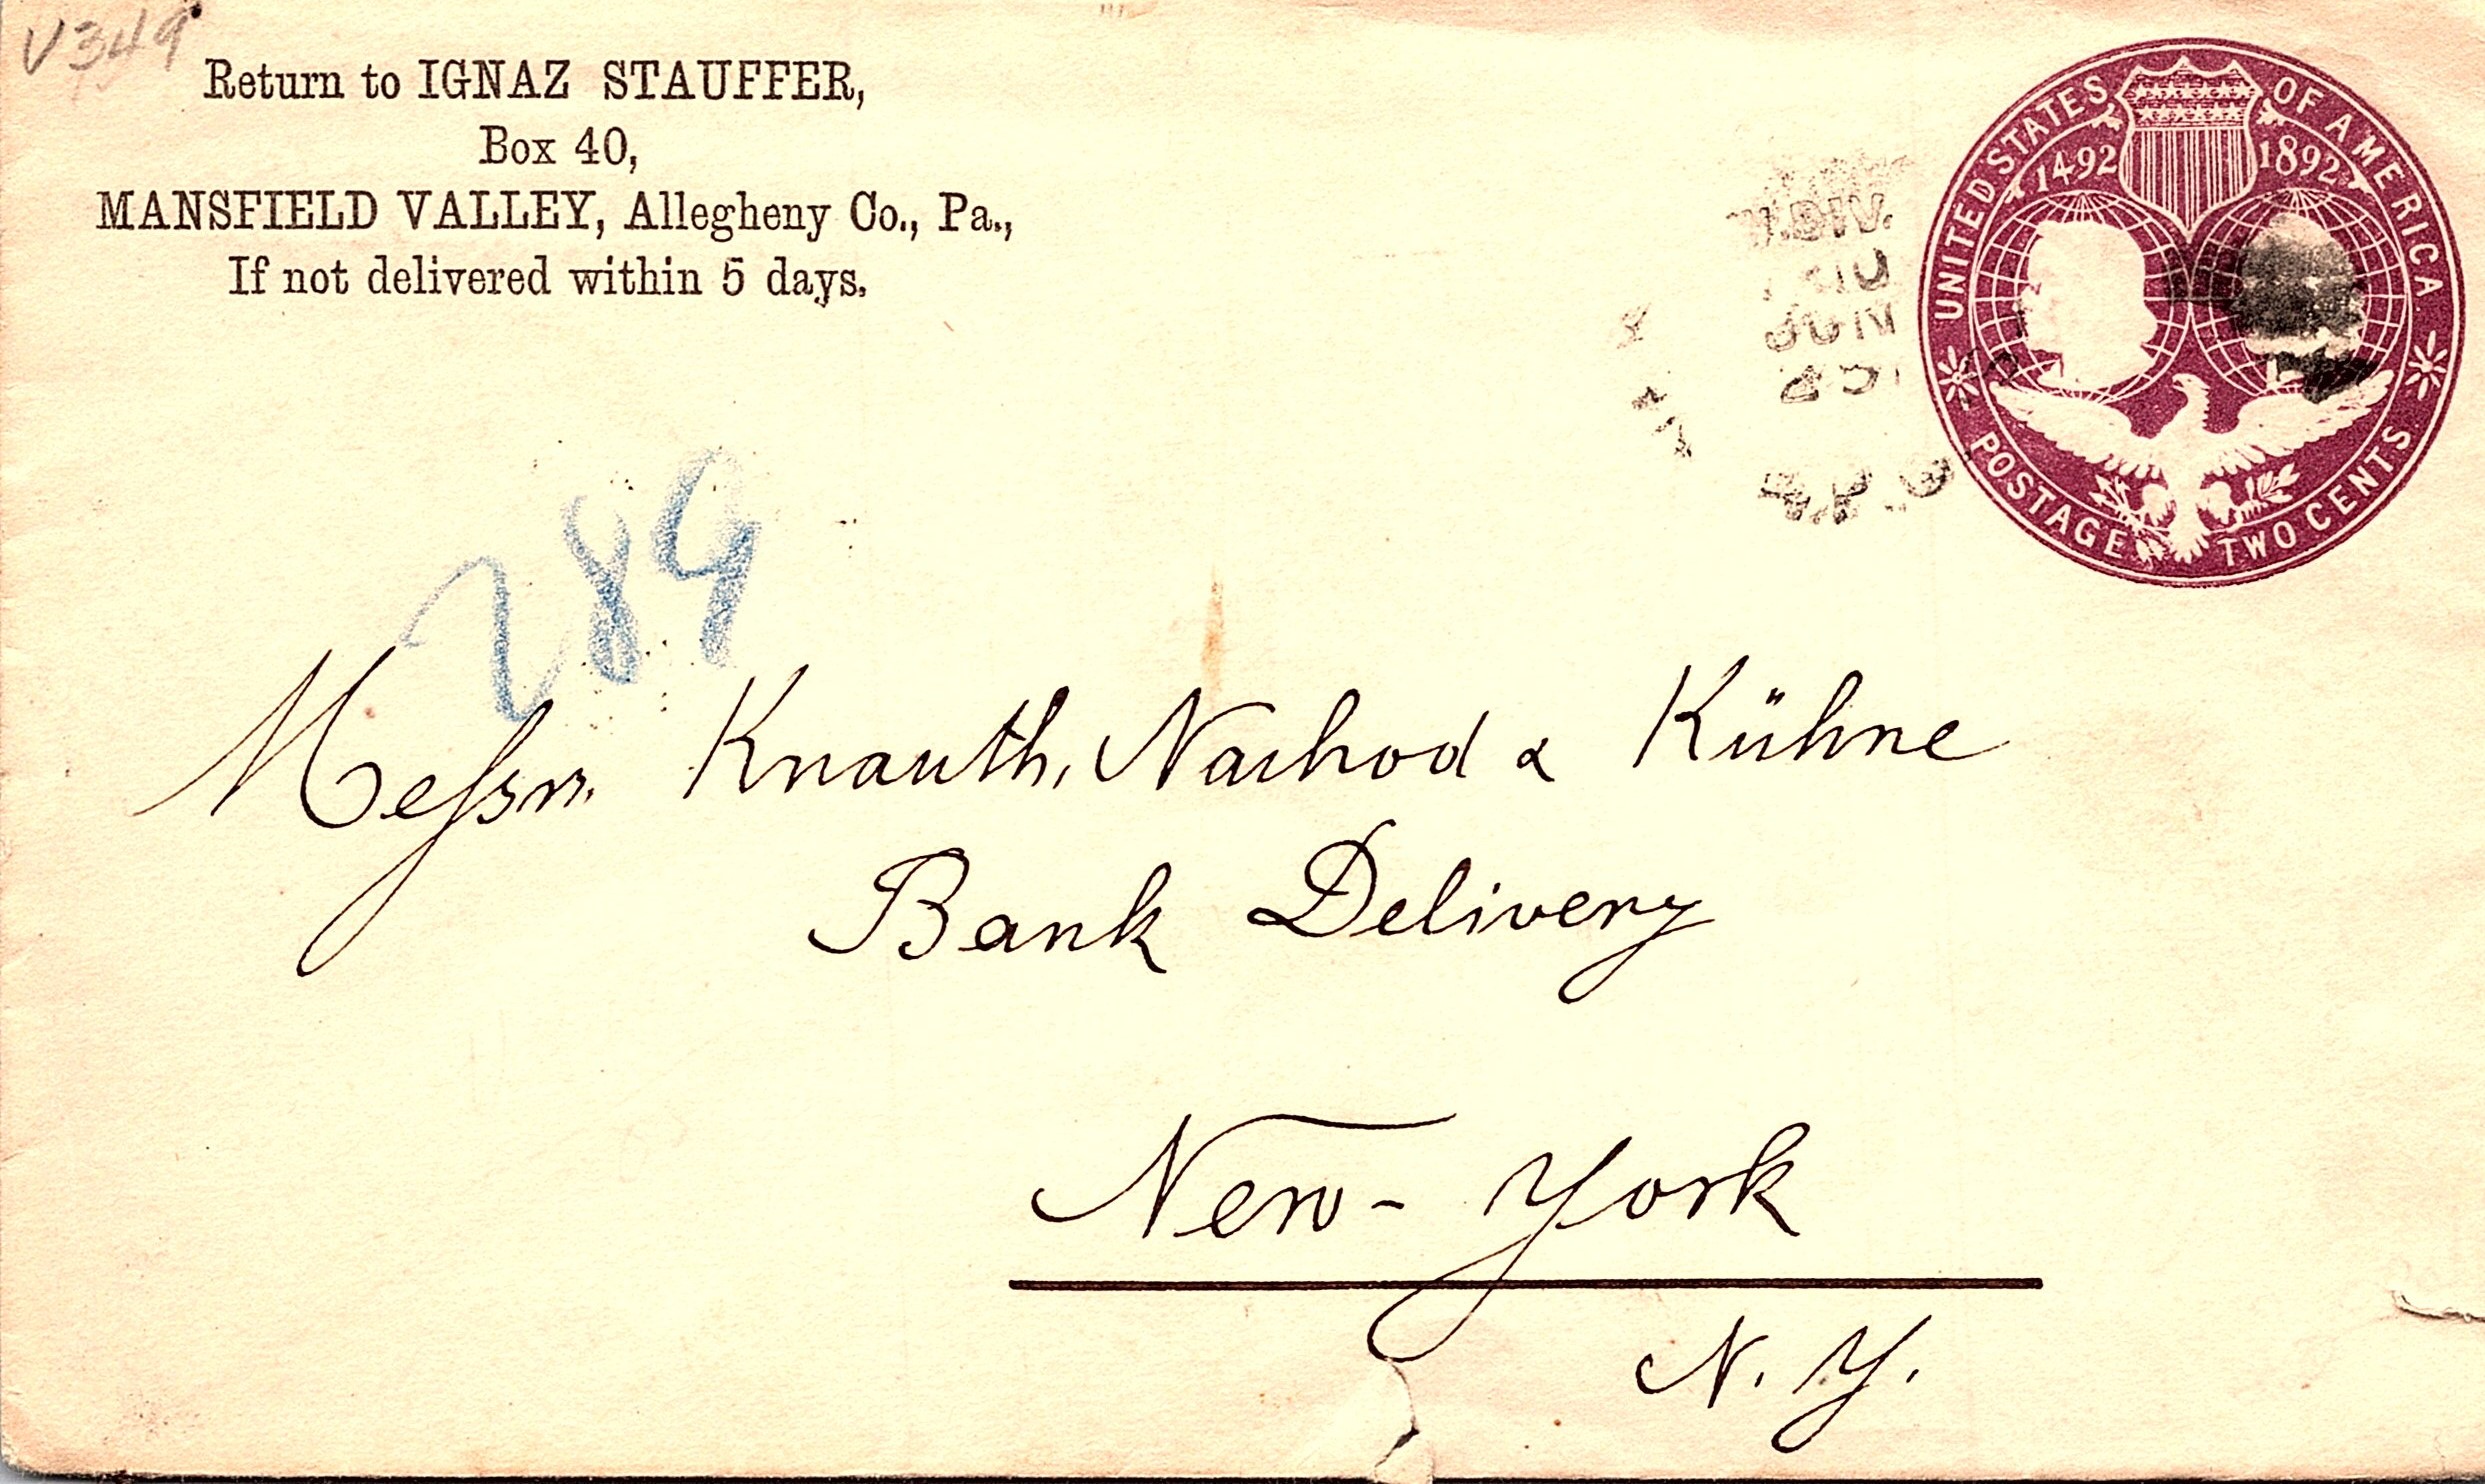 V349
Return to IGNAZ STAUFFER,
Box 40,
MANSFIELD VALLEY, Allegheny Co., Pa.,
If not delivered within 5 days.
UNITED STATES OF AMERICA
1492 1892
POSTAGE TWO CENTS
DIV.
JUN
289
Meſsrs. Knauth, Nachod & Kühne
Bank Delivery
New-York
N. Y.